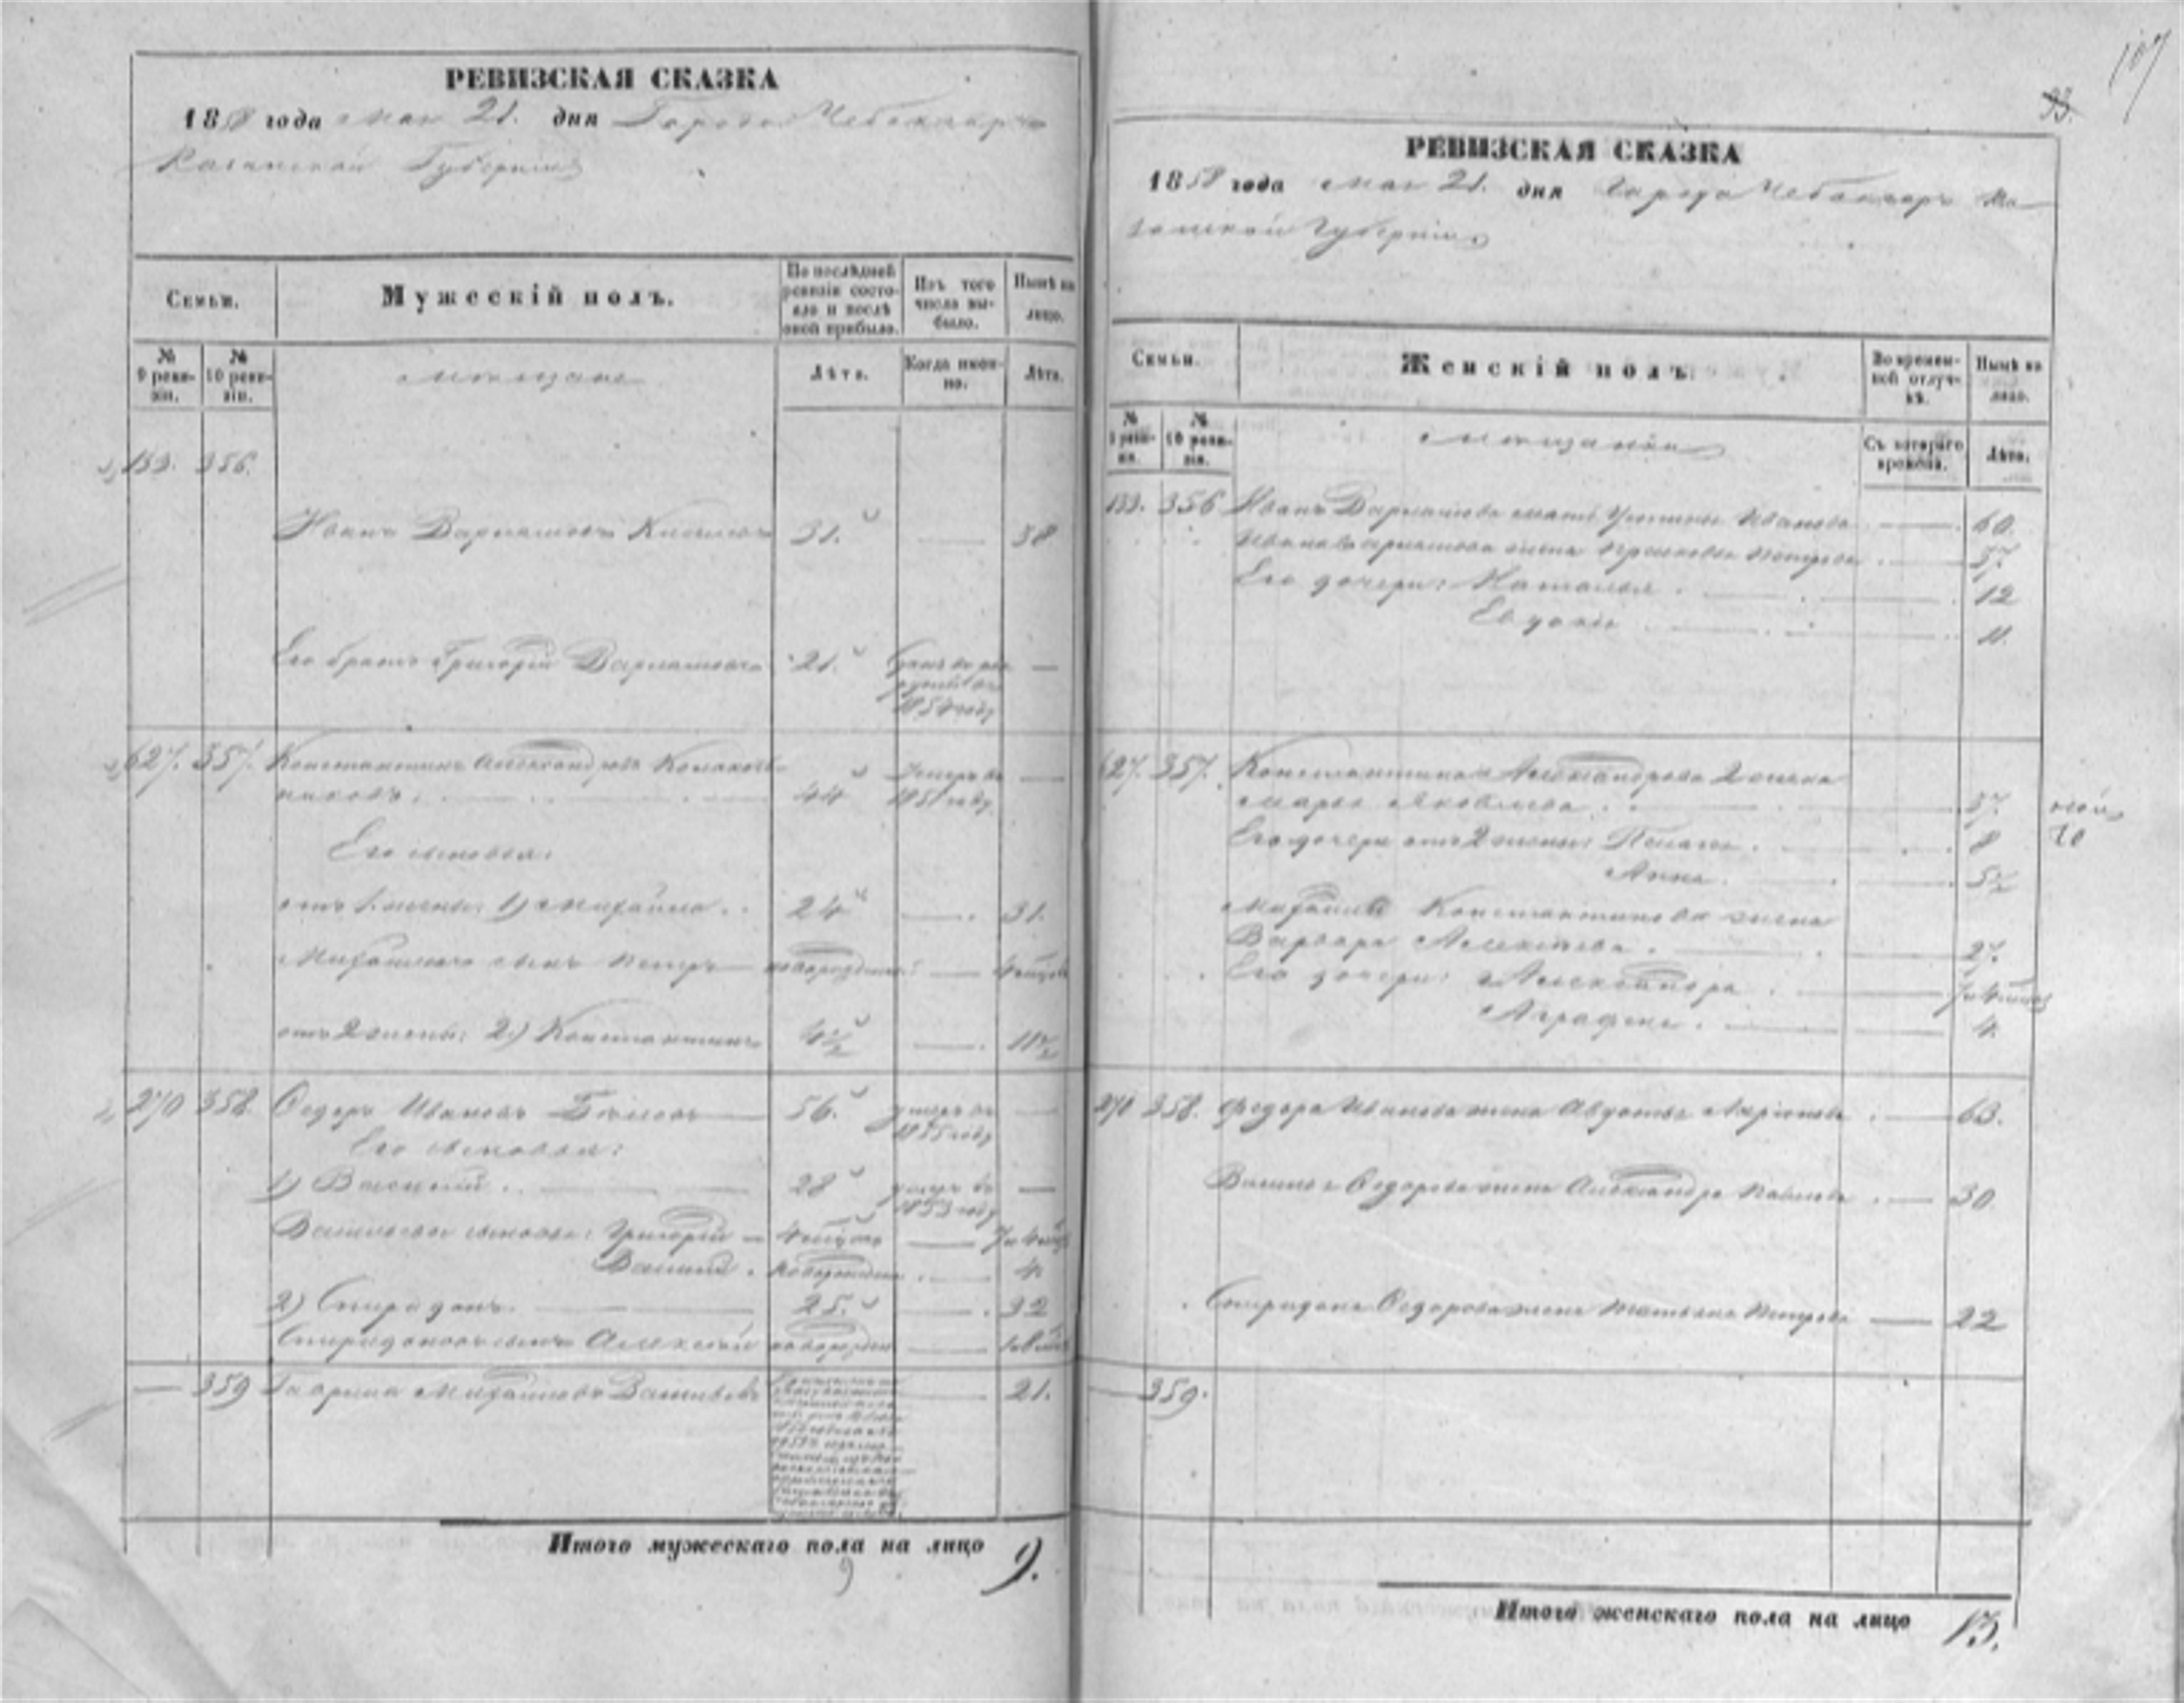 РЕВИЗСКАЯ СКАЗКА
1858 года мая 21. дня Города Чебоксаръ
Казанской Губернiи
Семьи.
Мужескiй полъ.
По послѣдней ревизiи состояло и послѣ оной прибыло.
Изъ того числа выбыло.
Нынѣ на лицо.
№ 9 ревизiи.
№ 10 ревизiи.
мещане
Лѣта.
Когда именно.
Лѣта.
133. 356.
Иванъ Варламовъ 31. — 38
Его братъ Григорiй Варламовъ 21. —
627. 357. Константинъ Александровъ
44 умеръ въ 1851 году —
Его сыновья:
отъ 1. жены: 1) Михайла 24 — 31.
Михайловъ сынъ Петръ новорожденный —
отъ 2 жены: 2) Константинъ 4½ — 11½
270 358 Ѳедоръ Ивановъ Бѣловъ 56. умеръ въ 1855 году —
Его сыновья:
1) Василiй 28 умеръ въ 1853 году —
Васильевы сыновья: Григорiй —
Василiй новорожден — 4.
2) Спиридонъ 25. — 32
Спиридоновъ сынъ Алексѣй новорожден —
— 359 Гаврила Михайловъ Васильевъ — 21.
Итого мужескаго пола на лицо 9.
9
107
33.
РЕВИЗСКАЯ СКАЗКА
1858 года мая 21. дня Города Чебоксаръ Ка-
занской Губернiи
Семьи.
Женскiй полъ
Во временной отлучкѣ.
Нынѣ на лицо.
№ 9 ревизiи.
№ 10 ревизiи.
мещанки
Съ котораго времени.
Лѣта.
133. 356 Ивана Варламова мать Устинья Иванова — 60.
Ивана Варламова жена Прасковья Петрова — 37.
Его дочери: Наталья — 12
Евдокiя — 11.
627. 357. Константина Александрова 2 жена
Марья Яковлева — 37.
Его дочери отъ 2 жены: Пелагея — 8
Анна — 5½
Михайлы Константинова жена
Варвара Алексѣева — 27.
Его дочери: Александра —
Аграфена — 4.
270 358. Ѳедора Иванова жена Авдотья Ларiонова — 63.
Василья Ѳедорова жена Александра Павлова — 30.
Спиридона Ѳедорова жена Татьяна Петрова — 22
— 359.
Итого женскаго пола на лицо 13.